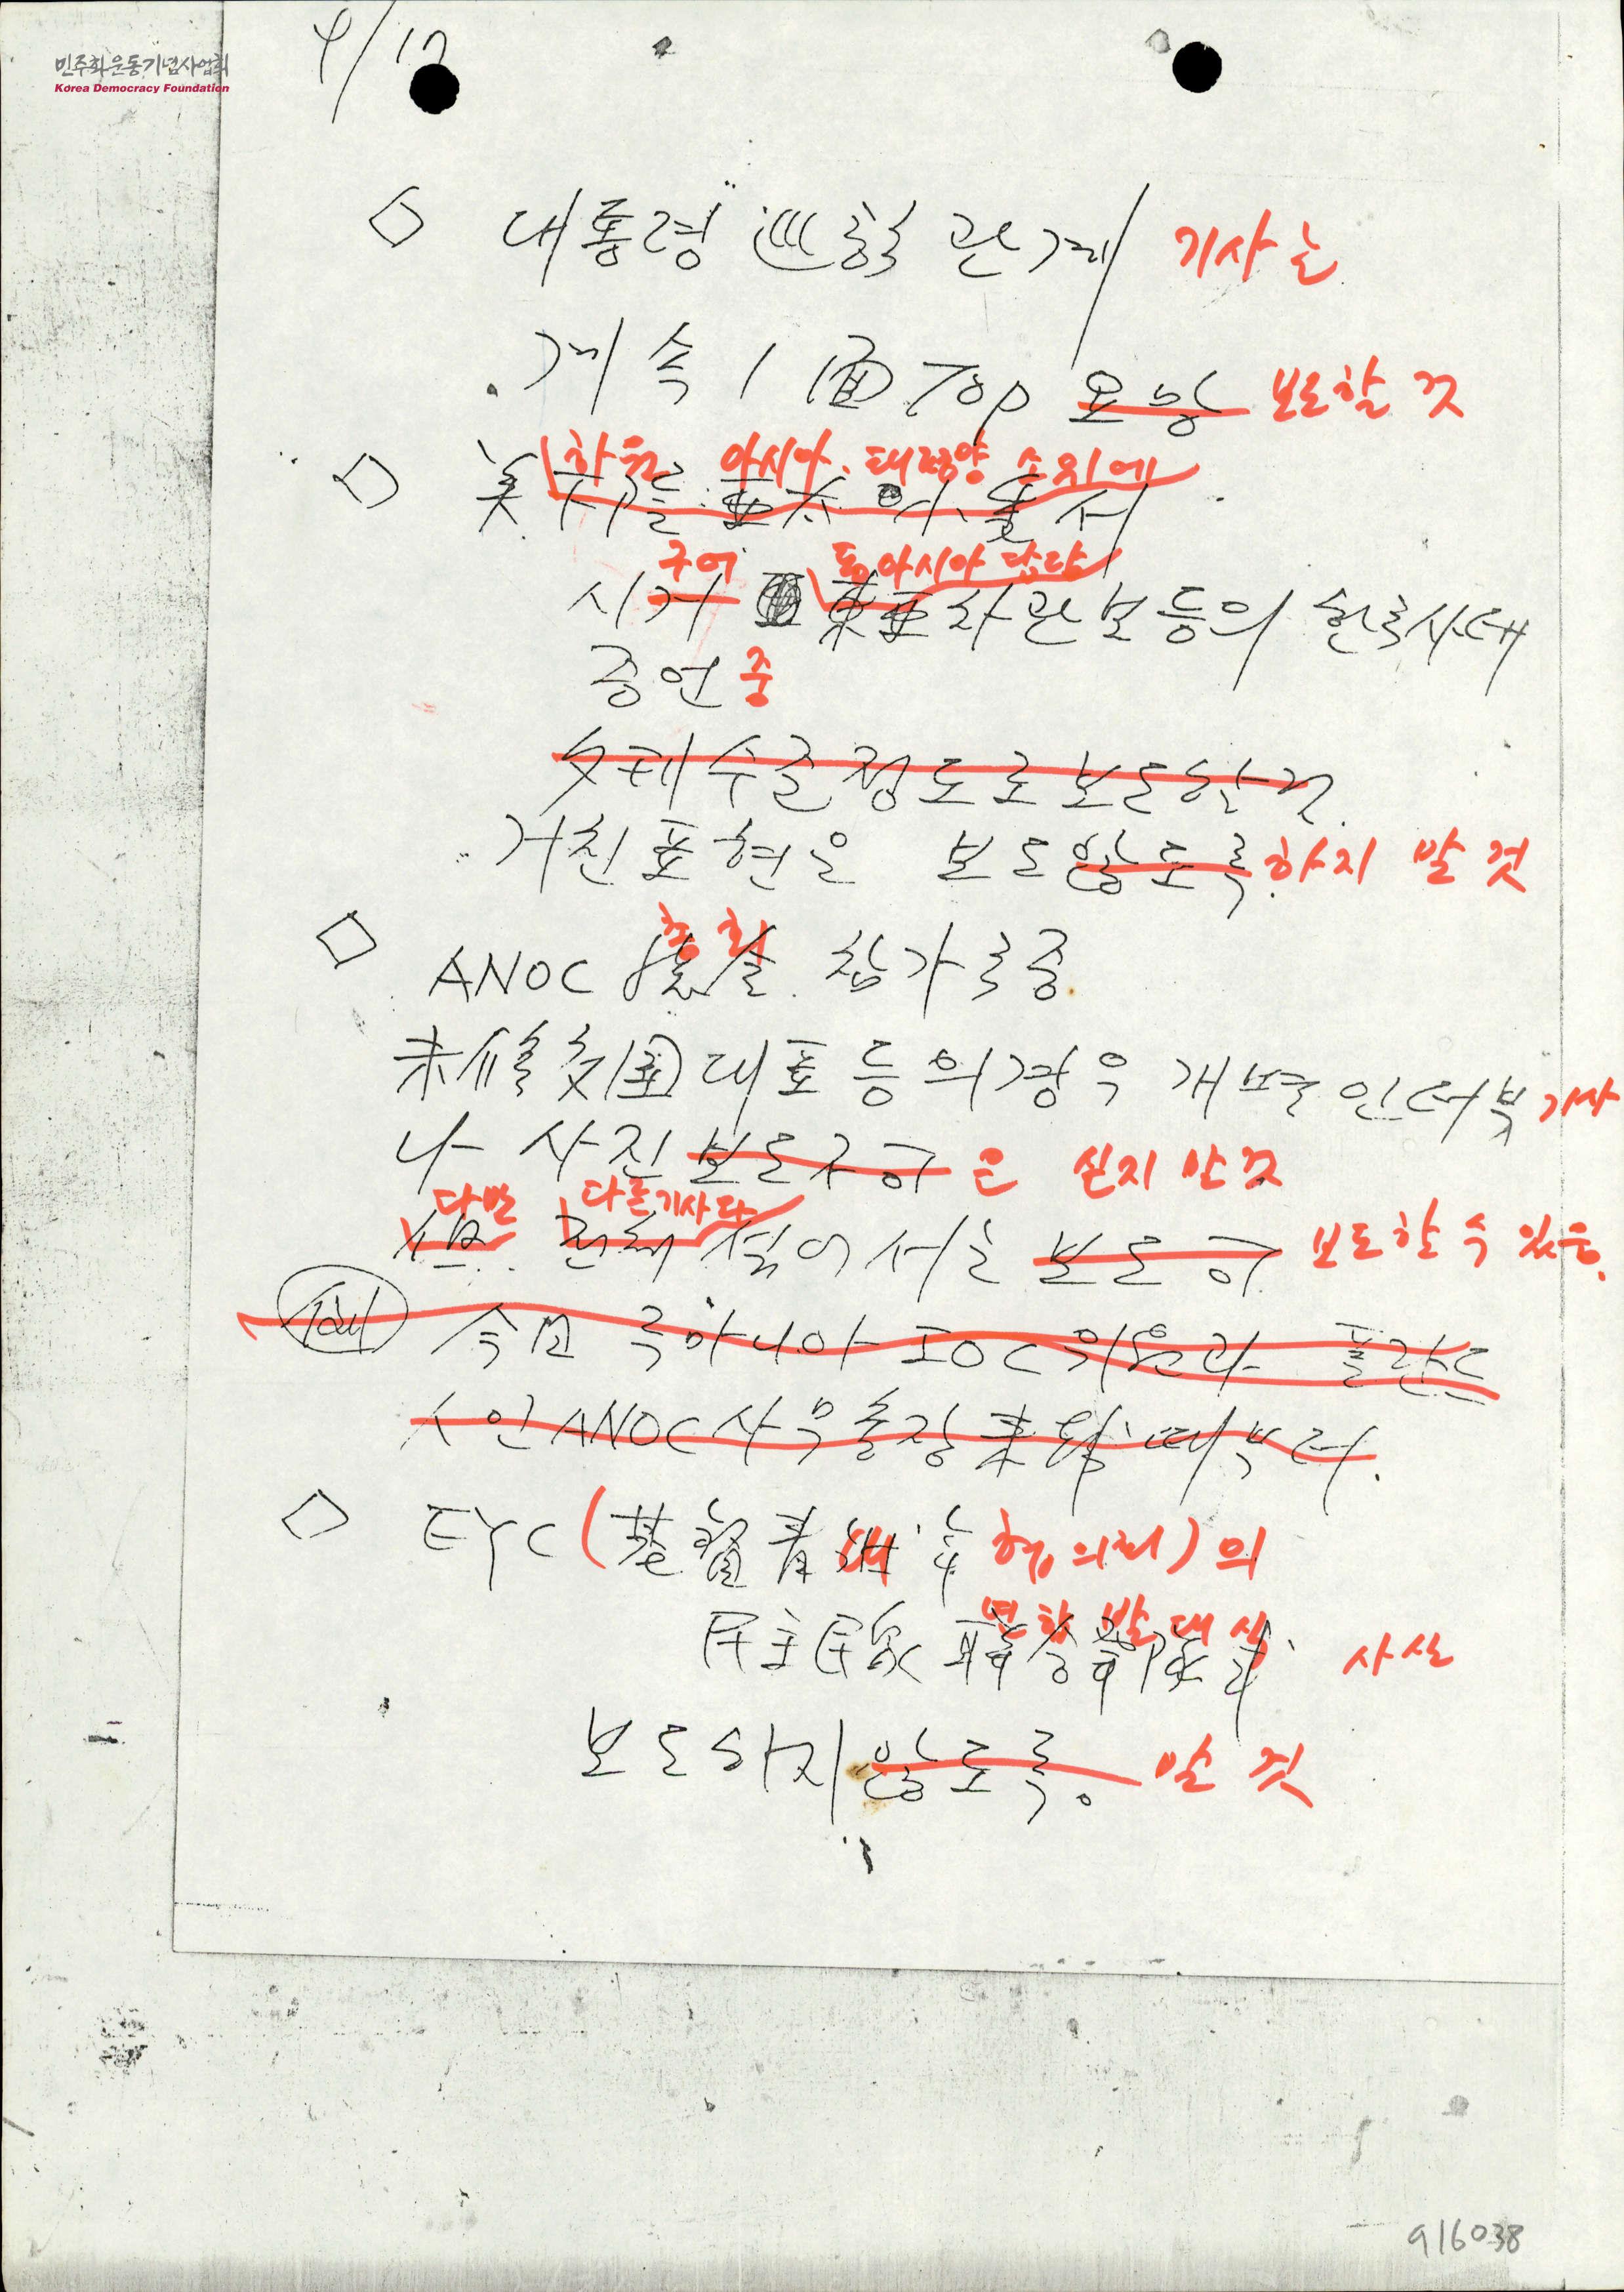 민주화운동기념사업회
Korea Democracy Foundation
4/17
◇ 대통령 巡訪 관계 기사는
계속 1面 Top 요망 보도할 것
◇ 美 하원 아시아, 태평양 소위에서
구어 동아시아 담당
시거 東亞차관보 등의 한국사태
증언 중
보도한 것
거친 표현은 보도않도록 하지 말 것
총회
ANOC 총회 참가국중
未修交国 대표 등의 경우 개별 인터뷰 기사
나 사진 보도불가 은 싣지 말 것
다만 다른 기사와
但 전체 섞어서는 보도 可 보도할 수 있음.
今日 루마니아 IOC위원과 폴란드
人인 ANOC사무총장 来韓 때부터.
◇ EYC (基督青년 협의회)의
연합 발대식
民主民衆 聯合 隊 사실
보도하지 않도록. 말 것
916038